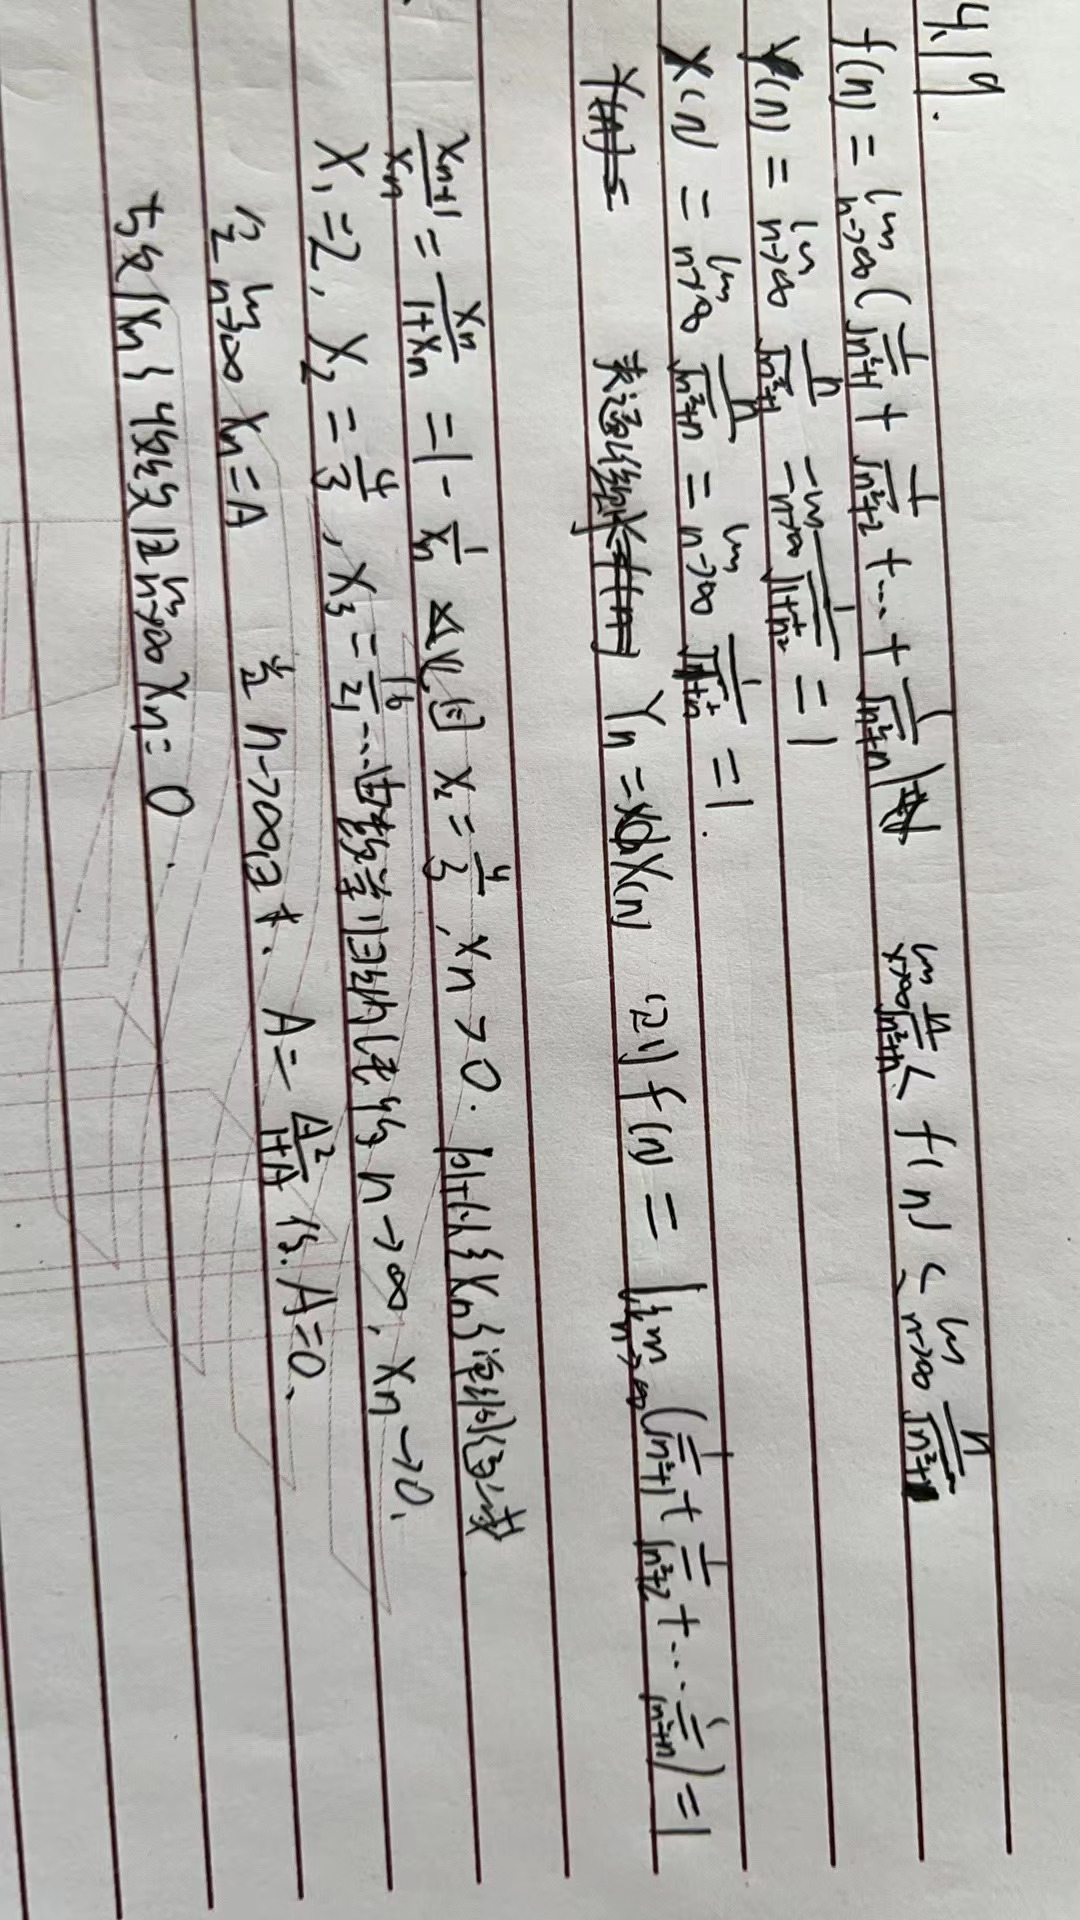 4.19.
f(n) = lim n→∞ (1/√n²+1 + 1/√n²+2 + ... + 1/√n²+n) lim x→∞ n/√n²+n < f(n) < lim n→∞ n/√n²+1
Y(n) = lim n→∞ n/√n²+1 = lim n→∞ 1/√1+1/n² = 1
X(n) = lim n→∞ n/√n²+n = lim n→∞ 1/√1+1/n = 1.
Yn = X(n) 记 f(n) = lim n→∞ (1/√n²+1 + 1/√n²+2 + ... 1/√n²+n) = 1
Xn+1/Xn = Xn/1+Xn = 1 - 1/Xn 又因 X₂ = 4/3, Xn > 0. {Xn} 单调递减
X₁=2, X₂=4/3, X₃=16/21 ... 由数学归纳法 n→∞, Xn→0.
令 lim n→∞ Xn=A 当 n→∞时. A = A²/1+A 得. A=0.
故 {Xn} 收敛且 lim n→∞ Xn = 0.